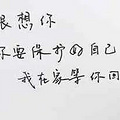 很想你
你要保护好自己
我在家等你回